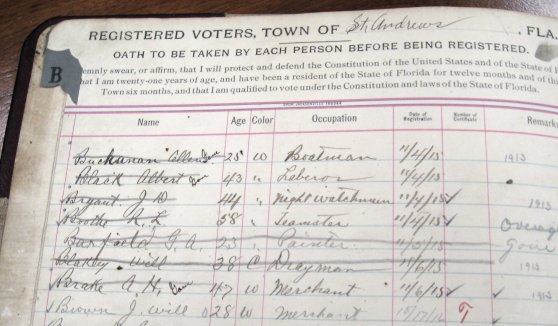 REGISTERED VOTERS, TOWN OF St. Andrews, FLA.
OATH TO BE TAKEN BY EACH PERSON BEFORE BEING REGISTERED.
B
emnly swear, or affirm, that I will protect and defend the Constitution of the United States and of the State of
hat I am twenty-one years of age, and have been a resident of the State of Florida for twelve months and of this
Town six months, and that I am qualified to vote under the Constitution and laws of the State of Florida.
Name Age Color Occupation Date of Registration Number of Certificate Remarks
Buchanan Allen 25 W Boatman 11/4/15 1913
Black Albert 43 " Laborer 11/4/15
Bryant J W 44 " Night watchman 11/4/15 ✓ 1913
Boothe R. L. 58 " Teamster 11/4/15 ✓ Overage
Barfield G. A. 23 " Painter 11/5/15 Gone
Blakley Will 38 C Drayman 11/6/15 1913
Brake A. H. 47 W Merchant 11/6/15 ✓ ✓ 1913
Brown J. Will 28 W Merchant T